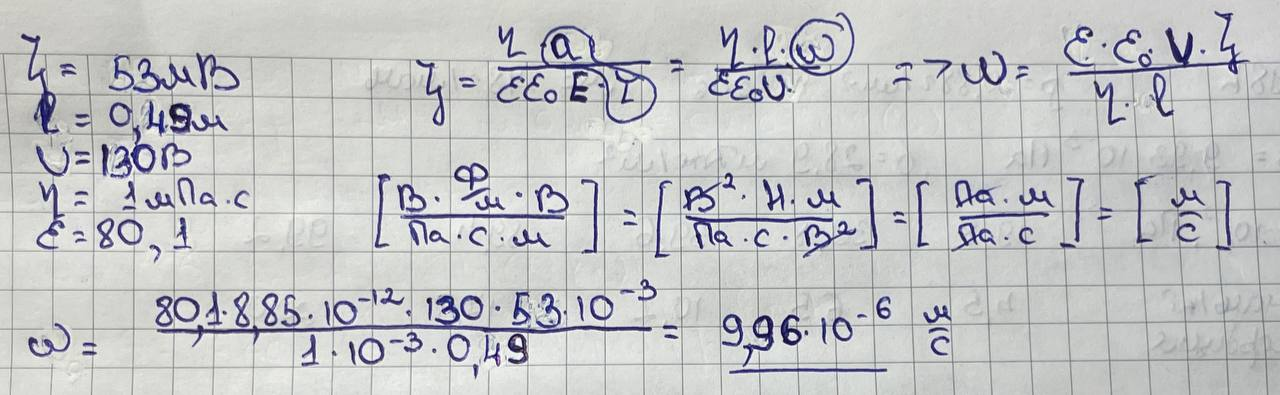 ζ = 53 мВ
l = 0,49 м
U = 130 В
η = 1 мПа·с
ε = 80,1
ζ = η a / εε₀ E · I = η · l · ω / εε₀U. => ω = ε · ε₀ U · ζ / η · l
[В · Ф/м · В / Па · с · м] = [В² · Н · м / Па · с · В²] = [Па · м / Па · с] = [м / с]
ω = 80,1 · 8,85 · 10⁻¹² · 130 · 53 · 10⁻³ / 1 · 10⁻³ · 0,49 = 9,96 · 10⁻⁶ м/с